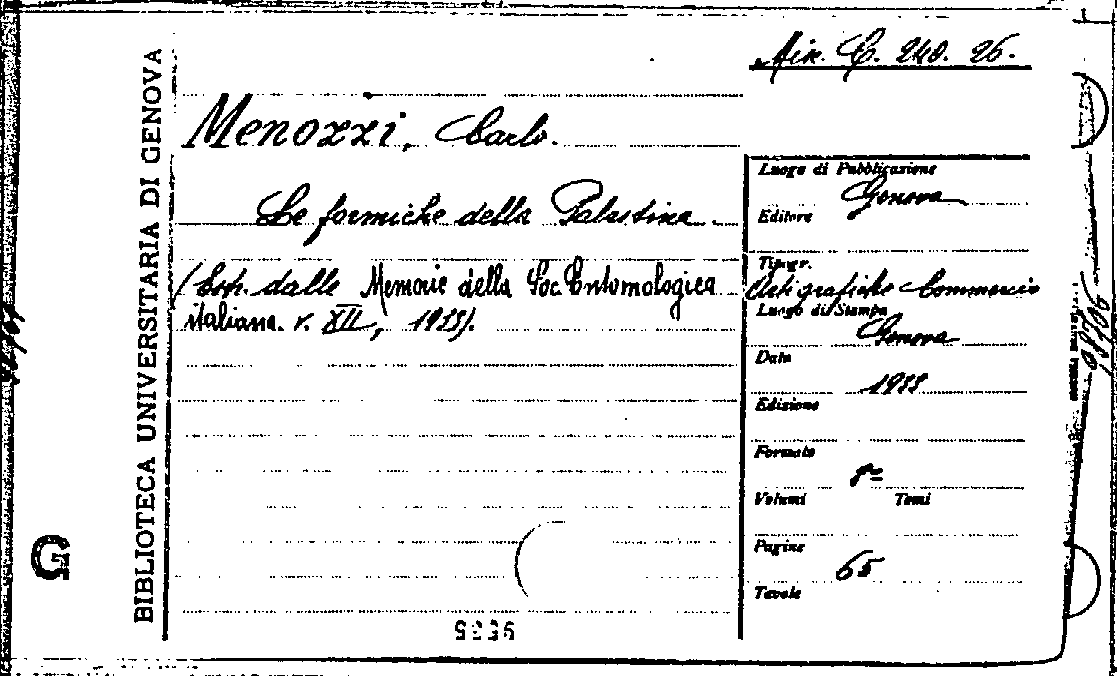 Min. C. 240. 26.
BIBLIOTECA UNIVERSITARIA DI GENOVA
Menozzi, Carlo.
Le formiche della Palestina.
(Estr. dalle Memorie della Soc. Entomologica
italiana. v. XII, 1933).
Luogo di Pubblicazione
Genova
Editore
Tipogr.
Arti grafiche Commercio
Luogo di Stampa
Genova
Data
1933
Edizione
Formato
8°
Volumi Tomi
Pagine
65
Tavole
G